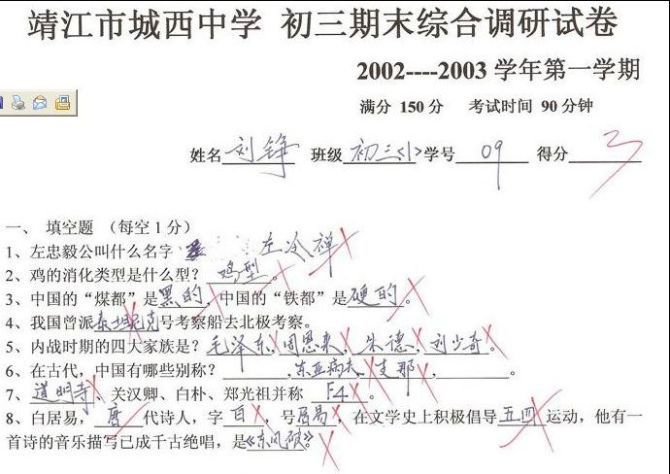 靖江市城西中学 初三期末综合调研试卷
2002----2003 学年第一学期
满分 150 分 考试时间 90 分钟
姓名 刘铮 班级 初三<1> 学号 09 得分 3
一、 填空题 （每空 1 分）
1、左忠毅公叫什么名字 左冷禅
2、鸡的消化类型是什么型？ 鸡型
3、中国的“煤都”是黑的，中国的“铁都”是硬的。
4、我国曾派泰坦尼克号考察船去北极考察。
5、内战时期的四大家族是？毛泽东，周恩来，朱德，刘少奇。
6、在古代，中国有哪些别称？ ，东亚病夫，支那， 。
7、道明寺、关汉卿、白朴、郑光祖并称 F4。
8、白居易，唐代诗人，字 白，号居易，在文学史上积极倡导五四运动，他有一
首诗的音乐描写已成千古绝唱，是《东风破》。